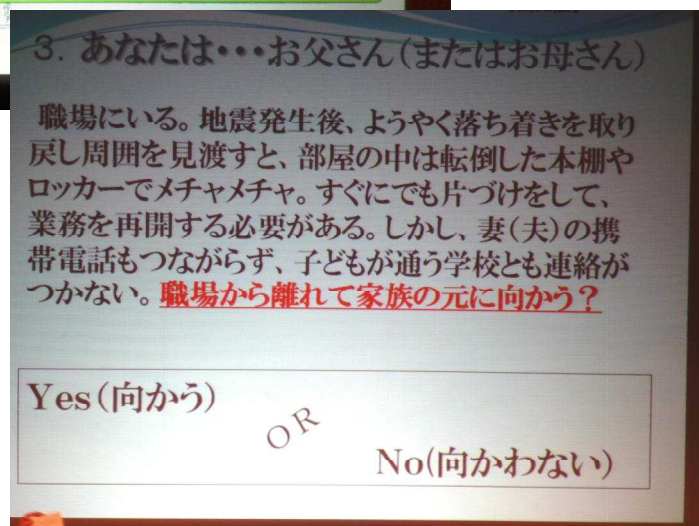 3. あなたは・・・お父さん(またはお母さん)
職場にいる。地震発生後、ようやく落ち着きを取り
戻し周囲を見渡すと、部屋の中は転倒した本棚や
ロッカーでメチャメチャ。すぐにでも片づけをして、
業務を再開する必要がある。しかし、妻(夫)の携
帯電話もつながらず、子どもが通う学校とも連絡が
つかない。職場から離れて家族の元に向かう?
Yes(向かう)
OR
No(向かわない)